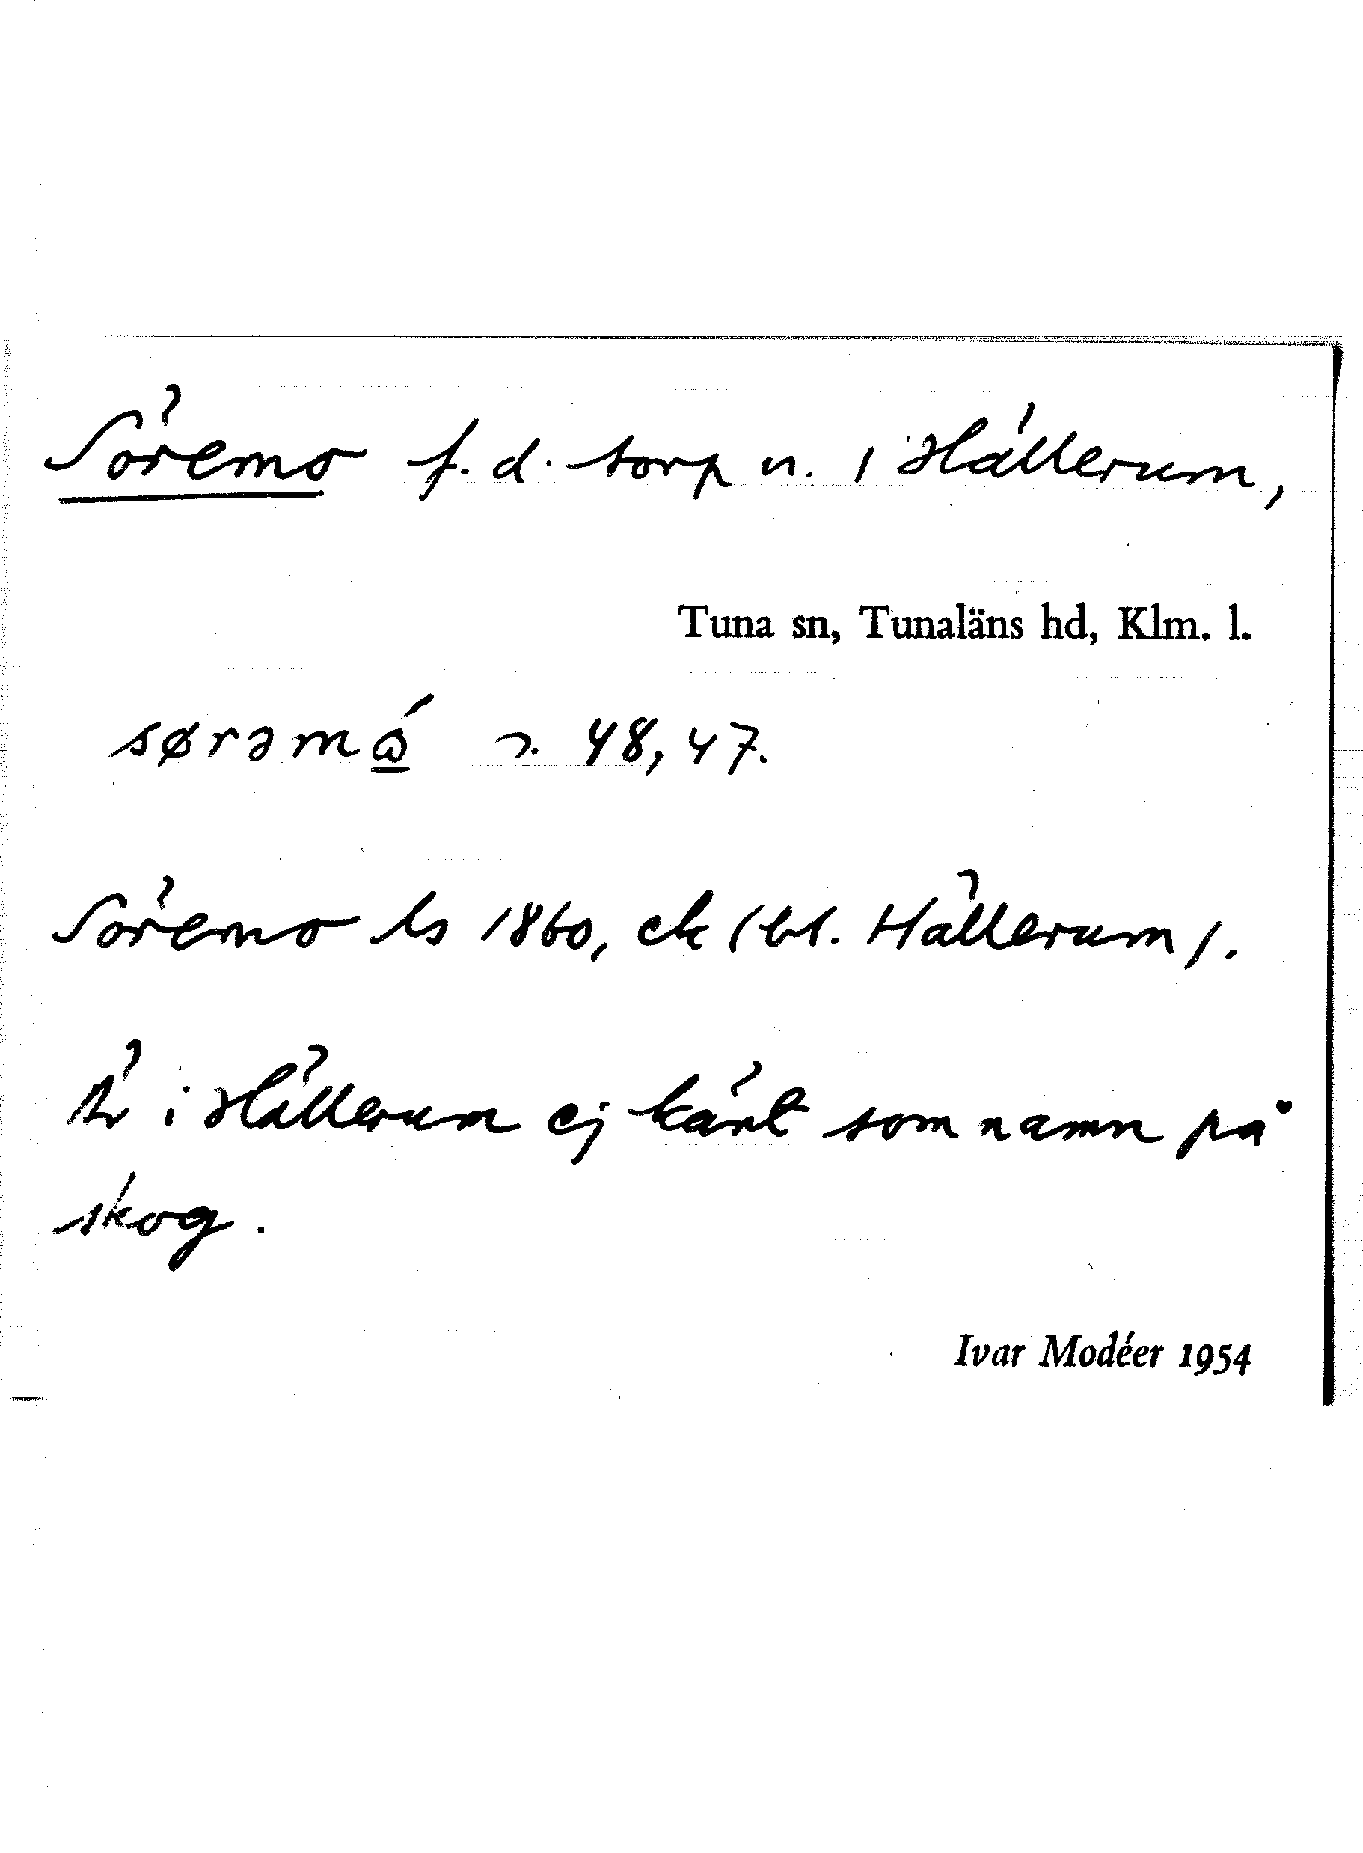 Söremo f. d. torp n. i Hällerum,
Tuna sn, Tunaläns hd, Klm. l.
sørəmó 48, 47.
Söremo ls 1860, ek (bl. Hällerum).
Är i Hällerum ej känt som namn på
skog.
Ivar Modéer 1954